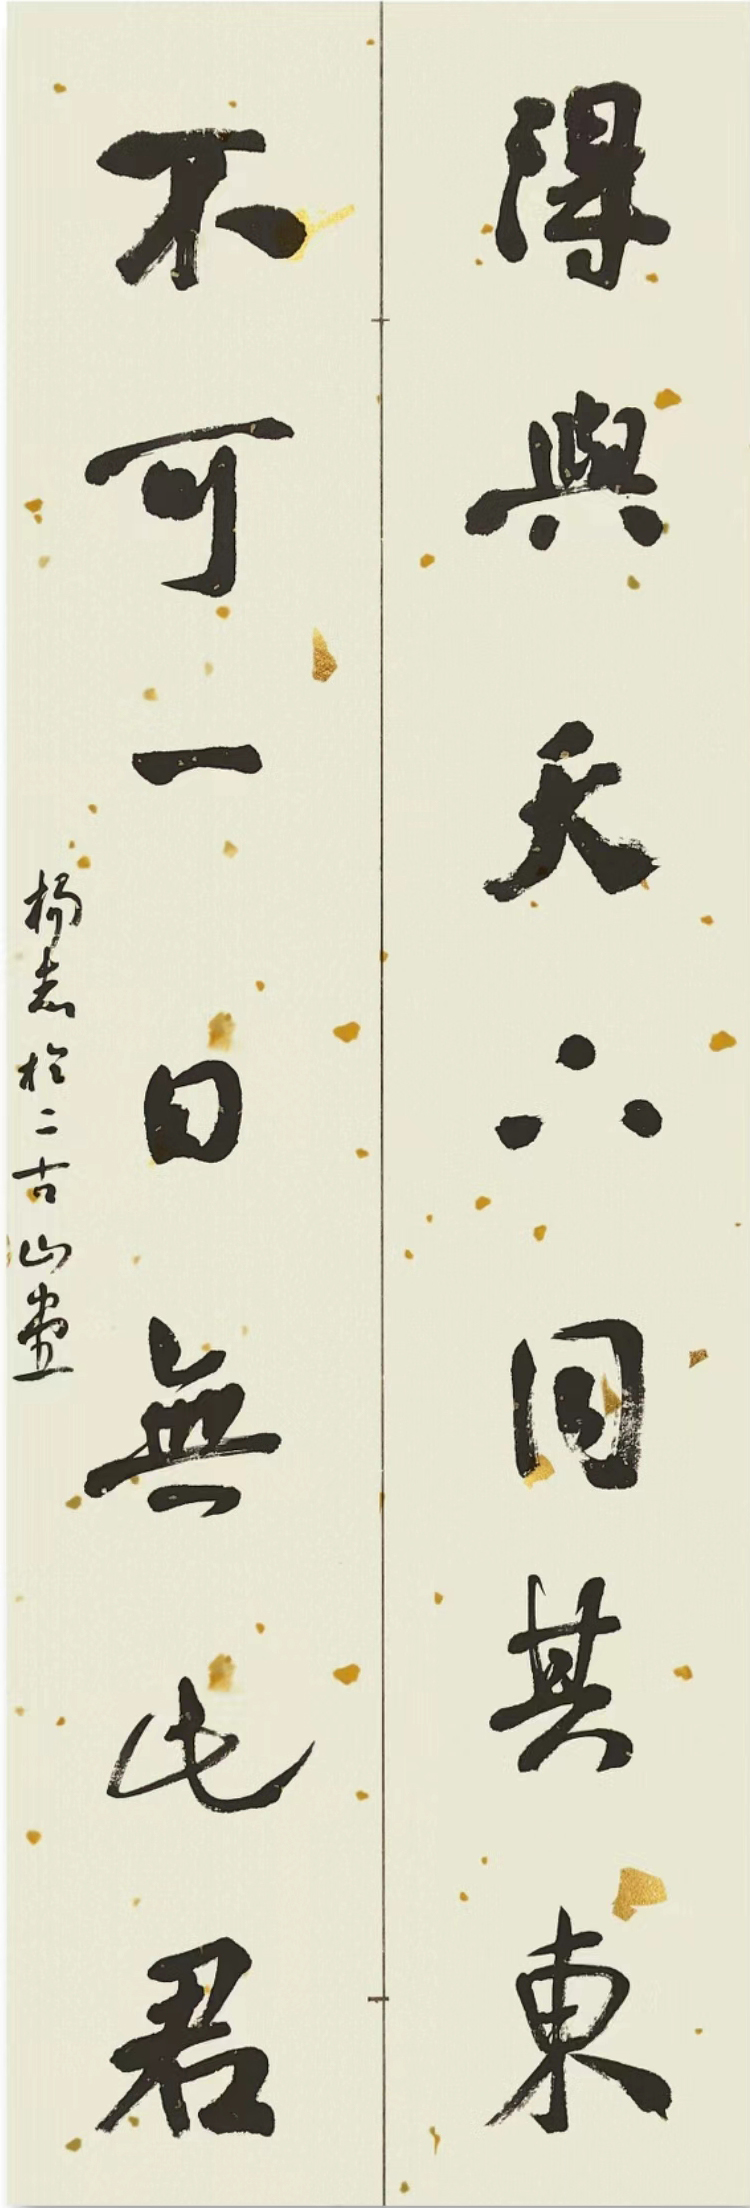 得與天下同其東
不可一日無此君
楊志於二古山堂